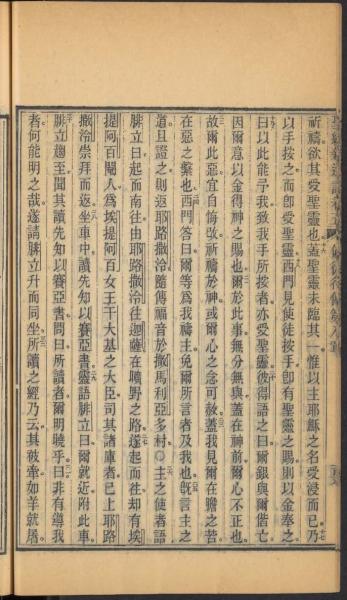 祈禱欲其受聖靈也蓋聖靈未臨其一惟以主耶穌之名受浸而已乃
以手按之而卽受聖靈西門見使徒按手卽有聖靈之賜則以金奉之
曰以此能予我致我手所按者亦受聖靈彼得語之曰爾銀與爾偕亡
因爾意以金得神之賜也爾於此事無分無與蓋在神前爾心不正也
故爾此惡宜自悔改祈禱於神或爾心之念可赦蓋我見爾在膽之苦
在惡之繫也西門答曰爾等爲我禱主免爾所言者及我也旣言主之
道且證之則返耶路撒冷隨傳福音於撒馬利亞多村○主之使者語
腓立曰起而南往由耶路撒冷往迦薩在曠野之路遂起而往却有埃
提阿百閹人爲埃提阿百女王干大基之大臣司其諸庫者已上耶路
撒冷崇拜而返坐車中讀先知以賽亞書靈語腓立曰爾就近附此車
腓立趨至聞其讀先知以賽亞書問曰所讀者爾明曉乎曰非有導我
者何能明之哉遂請腓立升而同坐所讀之經乃云其被牽如羊就屠